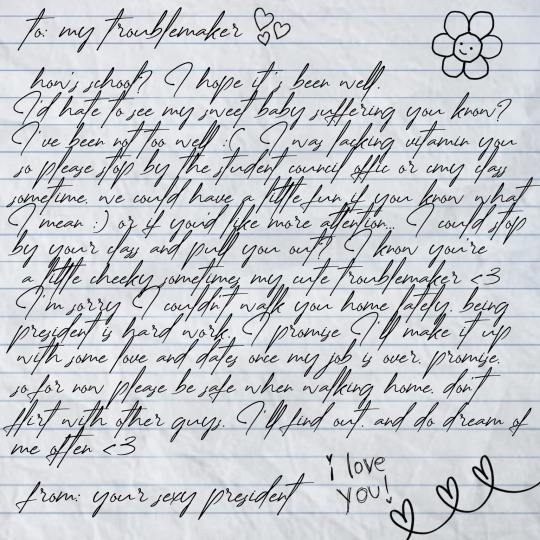 to: my troublemaker
how's school? I hope it's been well.
I'd hate to see my sweet baby suffering you know?
I've been not too well :( I was lacking vitamin you
so please stop by the student council offic or my class
sometime. we could have a little fun if you know what
I mean :) or if you'd like more attention... I could stop
by your class and pull you out? I know you're
a little cheeky sometimes my cute troublemaker <3
I'm sorry I couldn't walk you home lately. being
president is hard work. I promise I'll make it up
with some love and dates once my job is over. promise.
so for now please be safe when walking home. don't
flirt with other guys. I'll find out. and do dream of
me often <3
from: your sexy president
i love
you!